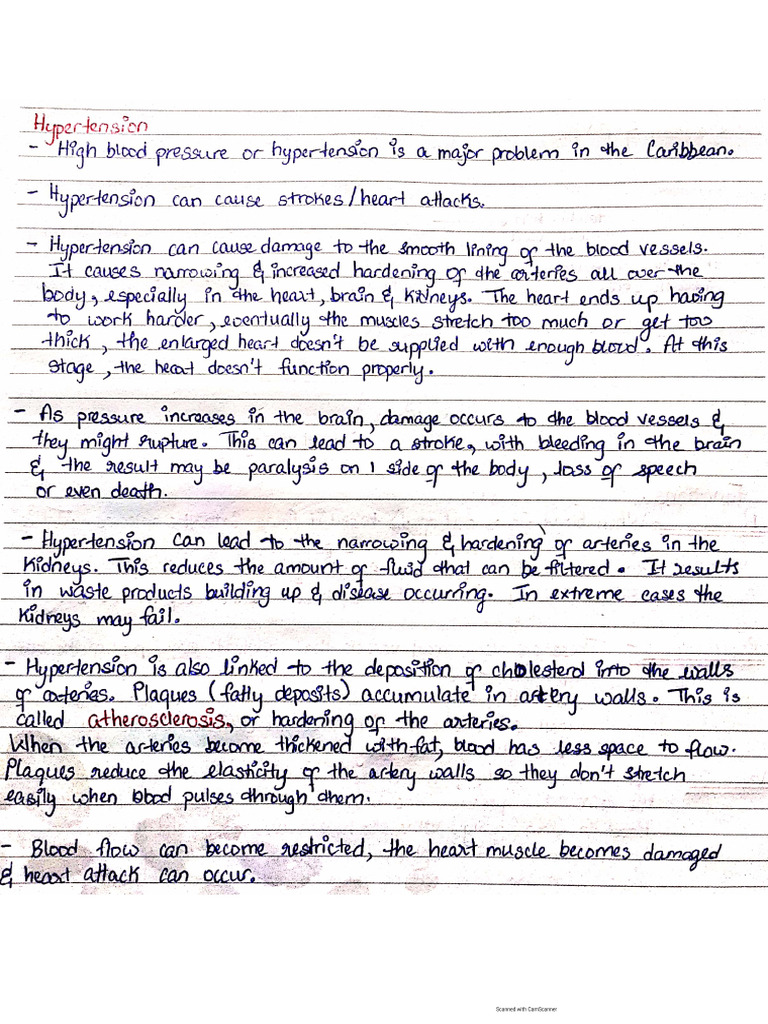 Hypertension
- High blood pressure or hypertension is a major problem in the Caribbean.
- Hypertension can cause strokes/heart attacks.
- Hypertension can cause damage to the smooth lining of the blood vessels.
It causes narrowing & increased hardening of the arteries all over the
body, especially in the heart, brain & kidneys. The heart ends up having
to work harder, eventually the muscles stretch too much or get too
thick, the enlarged heart doesn't be supplied with enough blood. At this
stage, the heart doesn't function properly.
- As pressure increases in the brain, damage occurs to the blood vessels &
they might rupture. This can lead to a stroke, with bleeding in the brain
& the result may be paralysis on 1 side of the body, loss of speech
or even death.
- Hypertension can lead to the narrowing & hardening of arteries in the
kidneys. This reduces the amount of fluid that can be filtered. It results
in waste products building up & disease occurring. In extreme cases the
kidneys may fail.
- Hypertension is also linked to the deposition of cholesterol into the walls
of arteries. Plaques (fatty deposits) accumulate in artery walls. This is
called atherosclerosis, or hardening of the arteries.
When the arteries become thickened with fat, blood has less space to flow.
Plaques reduce the elasticity of the artery walls so they don't stretch
easily when blood pulses through them.
- Blood flow can become restricted, the heart muscle becomes damaged
& heart attack can occur.
Scanned with CamScanner